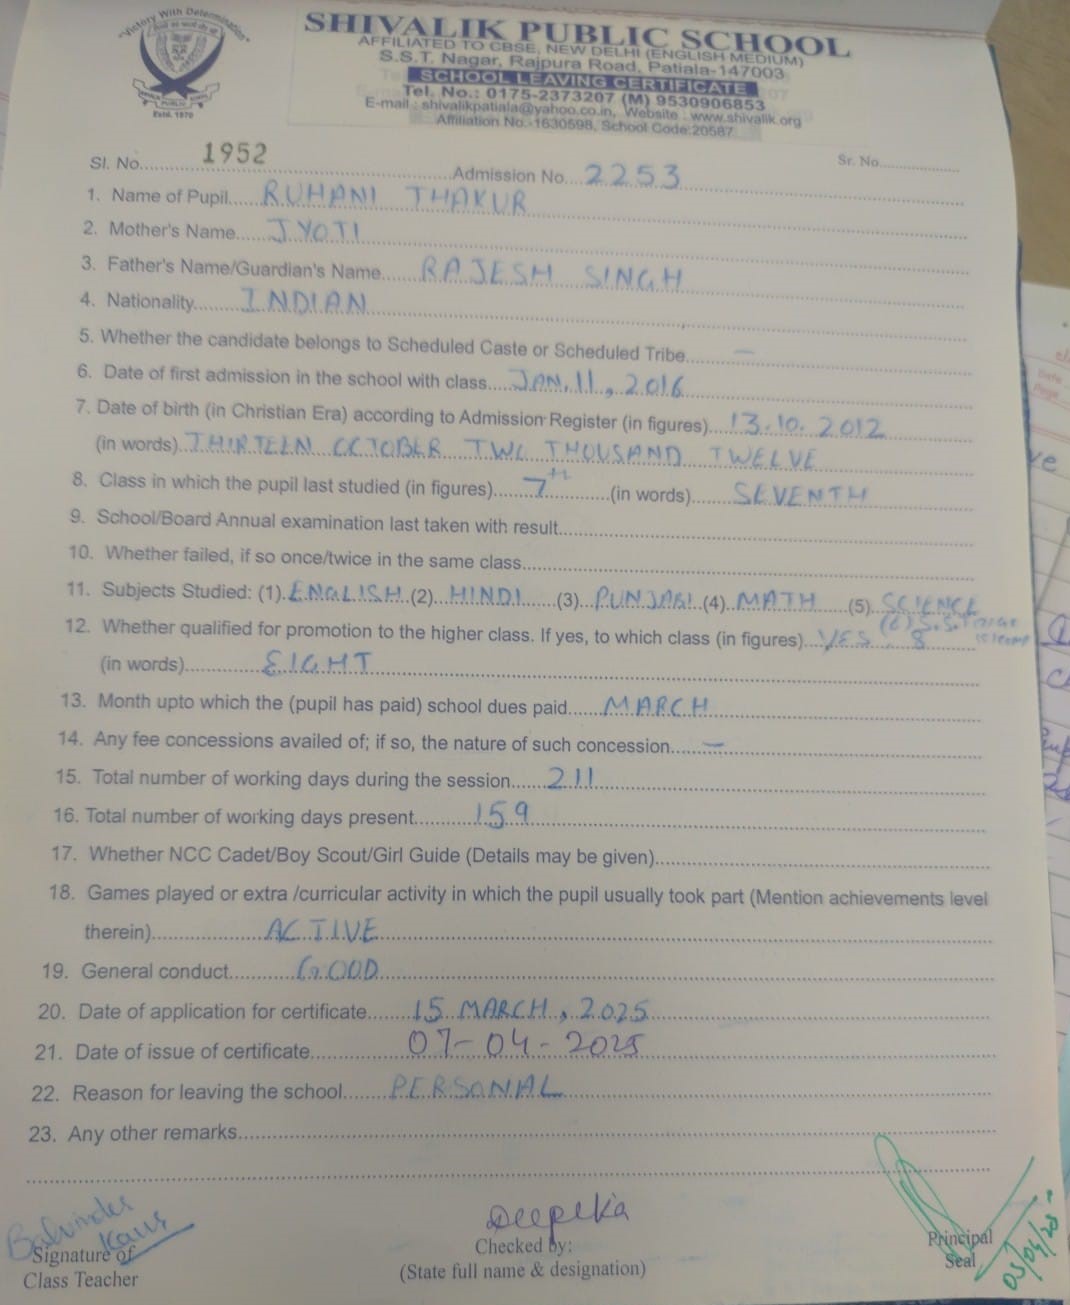 "Victory With Determination"
Estd. 1970
SHIVALIK PUBLIC SCHOOL
AFFILIATED TO CBSE, NEW DELHI (ENGLISH MEDIUM)
S.S.T. Nagar, Rajpura Road, Patiala-147003
SCHOOL LEAVING CERTIFICATE
Tel. No.: 0175-2373207 (M) 9530906853
E-mail : shivalikpatiala@yahoo.co.in, Website : www.shivalik.org
Affiliation No.-1630598, School Code:20587
Sl. No. 1952 Admission No. 2253 Sr. No.
1. Name of Pupil RUHANI THAKUR
2. Mother's Name JYOTI
3. Father's Name/Guardian's Name RAJESH SINGH
4. Nationality INDIAN
5. Whether the candidate belongs to Scheduled Caste or Scheduled Tribe —
6. Date of first admission in the school with class JAN, 11, 2016
7. Date of birth (in Christian Era) according to Admission Register (in figures) 13.10.2012
(in words) THIRTEEN OCTOBER TWO THOUSAND TWELVE
8. Class in which the pupil last studied (in figures) 7th (in words) SEVENTH
9. School/Board Annual examination last taken with result
10. Whether failed, if so once/twice in the same class
11. Subjects Studied: (1) ENGLISH (2) HINDI (3) PUNJABI (4) MATH (5) SCIENCE
(6) S.S.T
12. Whether qualified for promotion to the higher class. If yes, to which class (in figures) YES 8
(in words) EIGHT
13. Month upto which the (pupil has paid) school dues paid MARCH
14. Any fee concessions availed of; if so, the nature of such concession —
15. Total number of working days during the session 211
16. Total number of working days present 159
17. Whether NCC Cadet/Boy Scout/Girl Guide (Details may be given)
18. Games played or extra /curricular activity in which the pupil usually took part (Mention achievements level
therein) ACTIVE
19. General conduct GOOD
20. Date of application for certificate 15 MARCH, 2025
21. Date of issue of certificate 07-04-2025
22. Reason for leaving the school PERSONAL
23. Any other remarks
Balvinder Kaur
Signature of
Class Teacher
Deepika
Checked by:
(State full name & designation)
Principal
Seal